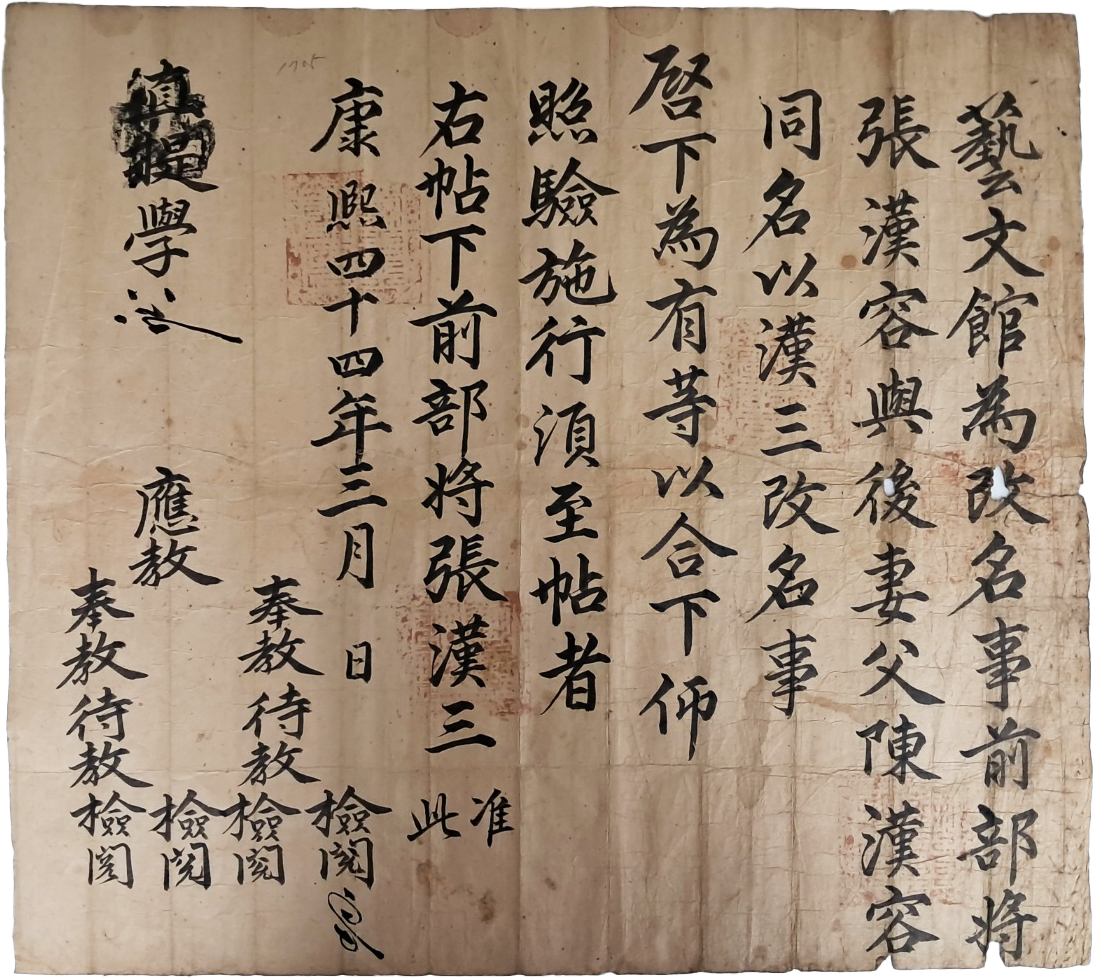 藝文館為改名事前部將
張漢容與後妻父陳漢容
同名以漢三改名事
啓下為有等以合下仰
照驗施行須至帖者
右帖下前部將張漢三
准此
康熙四十四年三月 日
1705
學
應教
奉教 待教 檢閱
奉教 待教 檢閱
檢閱
檢閱